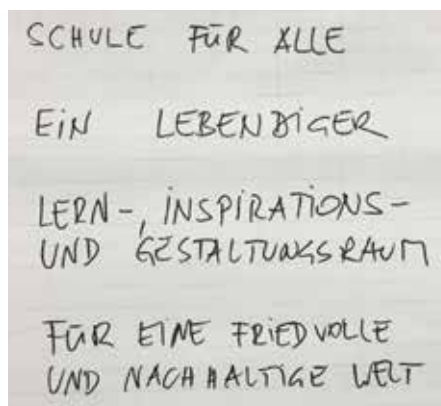 SCHULE FÜR ALLE
EIN LEBENDIGER
LERN-, INSPIRATIONS-
UND GESTALTUNGSRAUM
FÜR EINE FRIEDVOLLE
UND NACHHALTIGE WELT